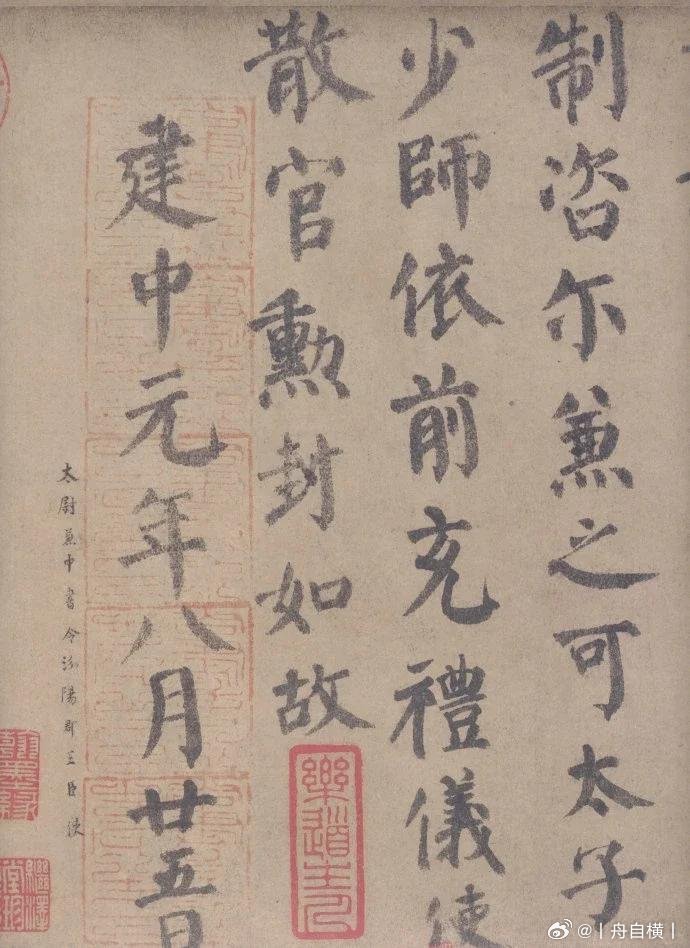 制咨尔兼之可太子
少師依前充禮儀使
散官勲封如故
建中元年八月廿五日
太尉兼中書令汾陽郡王臣使
樂道主人
@丨舟自横丨